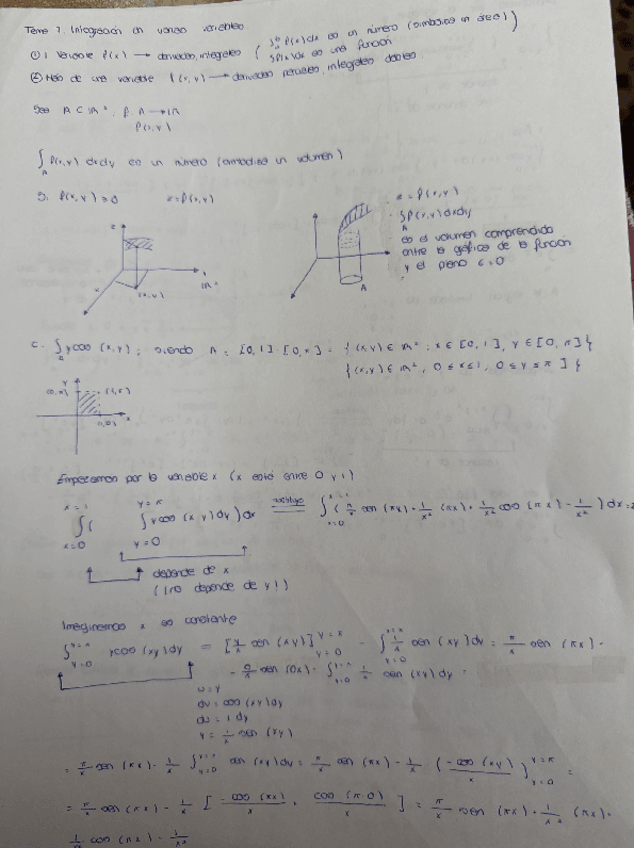 Tema 7. Integración en varias variables
① 1 Variable f(x) → derivadas, integrales ( ∫ₐᵇ f(x)dx es un número (simboliza un área) )
∫f(x)dx es una función
② Más de una variable f(x,y) → derivadas parciales, integrales dobles
Sea A ⊂ ℝ² f: A → ℝ
f(x,y)
∫_A f(x,y) dxdy es un número (simboliza un volumen)
Si f(x,y) ≥ 0 z = f(x,y)
z = f(x,y)
∫_A f(x,y)dxdy
es el volumen comprendido
entre la gráfica de la función
y el plano z=0
z
y
x
(x,y)
ℝ²
A
∫ ycos (x,y); siendo A = [0,1] [0,π] = { (x,y) ∈ ℝ²: x ∈ [0,1], y ∈ [0,π] }
{ (x,y) ∈ ℝ², 0 ≤ x ≤ 1, 0 ≤ y ≤ π }
y
x
Empezamos por la variable x (x está entre 0 y 1)
x=1 y=π
∫ ( ∫ ycos (xy)dy ) dx
x=0 y=0
depende de x
(¡no depende de y!)
Imaginemos x es constante
∫_{y=0}^{y=π} ycos (xy)dy = [y/x sen (xy)]_{y=0}^{y=π} - ∫_{y=0}^{y=π} 1/x sen (xy) dy = π/x sen (πx) -
- 0/x sen (0x) - ∫_{y=0}^{y=π} 1/x sen (xy) dy =
u = y
dv = cos (xy) dy
du = 1 dy
v = 1/x sen (xy)
= π/x sen (πx) - 1/x ∫_{y=0}^{y=π} sen (xy) dy = π/x sen (πx) - 1/x (-cos (xy)/x]_{y=0}^{y=π} =
= π/x sen (πx) - 1/x [-cos (πx)/x + cos (π·0)/x ] = π/x sen (πx) + 1/x² (πx)·
cos (πx) - 1/x²